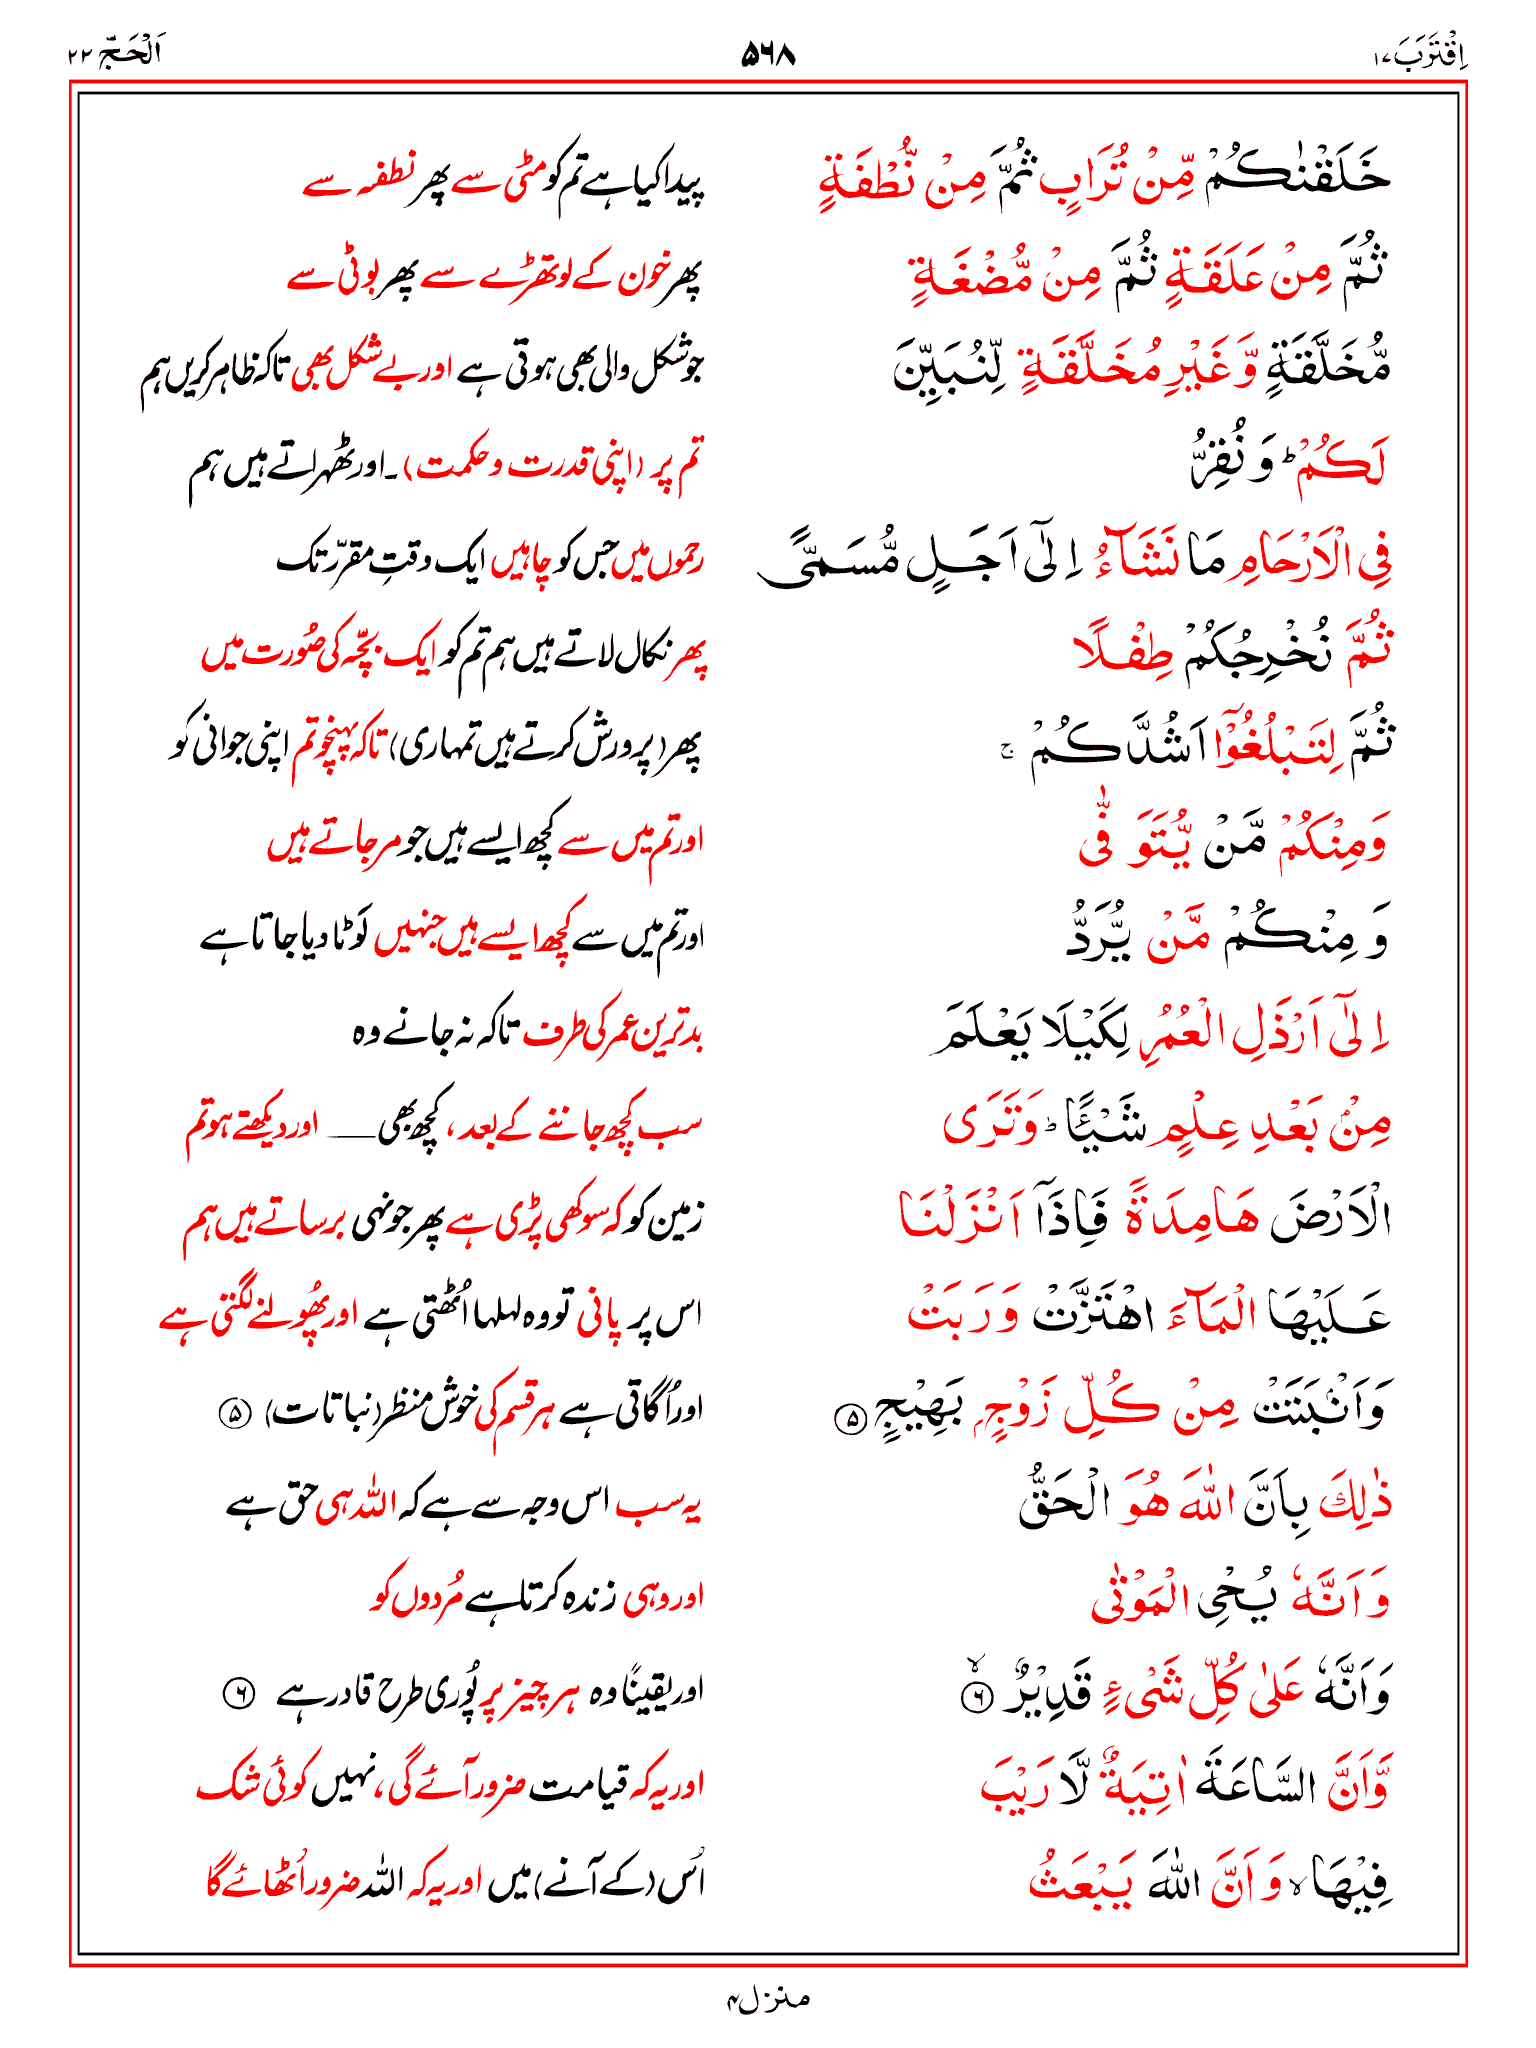 اِقْتَرَبَ ١٧ ۵۶۸ اَلْحَجّ ٢٢
خَلَقْنٰكُمْ مِّنْ تُرَابٍ ثُمَّ مِنْ نُّطْفَةٍ پیدا کیا ہے تم کو مٹی سے پھر نطفہ سے
ثُمَّ مِنْ عَلَقَةٍ ثُمَّ مِنْ مُّضْغَةٍ پھر خون کے لوتھڑے سے پھر بوٹی سے
مُّخَلَّقَةٍ وَّغَيْرِ مُخَلَّقَةٍ لِّنُبَيِّنَ جو شکل والی بھی ہوتی ہے اور بے شکل بھی تاکہ ظاہر کریں ہم
لَكُمْ ؕ وَ نُقِرُّ تم پر (اپنی قدرت و حکمت)۔ اور ٹھہراتے ہیں ہم
فِي الْاَرْحَامِ مَا نَشَآءُ اِلٰٓى اَجَلٍ مُّسَمًّى رحموں میں جس کو چاہیں ایک وقتِ مقرّر تک
ثُمَّ نُخْرِجُكُمْ طِفْلًا پھر نکال لاتے ہیں ہم تم کو ایک بچّہ کی صُورت میں
ثُمَّ لِتَبْلُغُوْٓا اَشُدَّكُمْ ۚ پھر (پرورش کرتے ہیں تمہاری) تاکہ پہنچو تم اپنی جوانی کو
وَمِنْكُمْ مَّنْ يُّتَوَفّٰى اور تم میں سے کچھ ایسے ہیں جو مر جاتے ہیں
وَ مِنْكُمْ مَّنْ يُّرَدُّ اور تم میں سے کچھ ایسے ہیں جنہیں لَوٹا دیا جاتا ہے
اِلٰٓى اَرْذَلِ الْعُمُرِ لِكَيْلَا يَعْلَمَ بدترین عمر کی طرف تاکہ نہ جانے وہ
مِنْۢ بَعْدِ عِلْمٍ شَيْـًٔا ؕ وَتَرَى سب کچھ جاننے کے بعد، کچھ بھی ___ اور دیکھتے ہو تم
الْاَرْضَ هَامِدَةً فَاِذَآ اَنْزَلْنَا زمین کو کہ سوکھی پڑی ہے پھر جونہی برساتے ہیں ہم
عَلَيْهَا الْمَآءَ اهْتَزَّتْ وَ رَبَتْ اس پر پانی تو وہ لہلہا اُٹھتی ہے اور پھُولنے لگتی ہے
وَاَنْۢبَتَتْ مِنْ كُلِّ زَوْجٍۭ بَهِيْجٍ ۵ اور اُگاتی ہے ہر قسم کی خوش منظر (نباتات) ۵
ذٰلِكَ بِاَنَّ اللّٰهَ هُوَ الْحَقُّ یہ سب اس وجہ سے ہے کہ اللہ ہی حق ہے
وَ اَنَّهٗ يُحْيِ الْمَوْتٰى اور وہی زندہ کرتا ہے مُردوں کو
وَاَنَّهٗ عَلٰى كُلِّ شَيْءٍ قَدِيْرٌ ۙ ۶ اور یقینًا وہ ہر چیز پر پُوری طرح قادر ہے ۶
وَّاَنَّ السَّاعَةَ اٰتِيَةٌ لَّا رَيْبَ اور یہ کہ قیامت ضرور آئے گی، نہیں کوئی شک
فِيْهَا ۙ وَ اَنَّ اللّٰهَ يَبْعَثُ اُس (کے آنے) میں اور یہ کہ اللہ ضرور اُٹھائے گا
منزل ۴